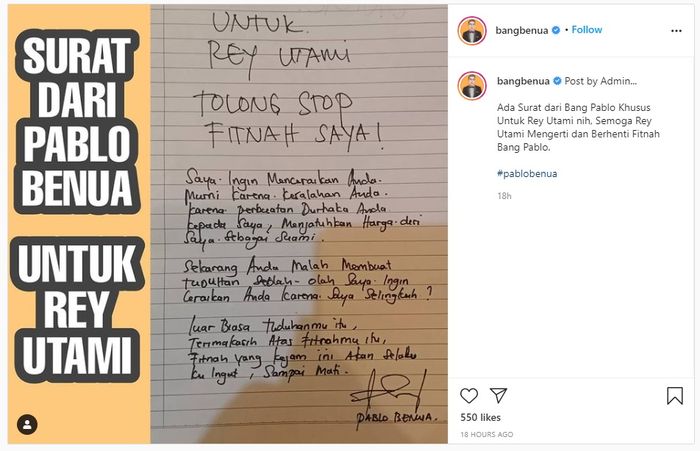 SURAT
DARI
PABLO
BENUA
UNTUK
REY
UTAMI
UNTUK
REY UTAMI
TOLONG STOP
FITNAH SAYA!
Saya Ingin Menceraikan Anda
Murni Karena Kesalahan Anda.
Karena perbuatan Durhaka Anda
kepada Saya, Menjatuhkan Harga diri
Saya Sebagai Suami.
Sekarang Anda Malah Membuat
tuduhan Seolah-olah Saya Ingin
Ceraikan Anda Karena Saya Selingkuh?
Luar Biasa Tuduhanmu itu,
Terimakasih Atas Fitnahmu itu,
Fitnah yang kejam ini Akan Selalu
ku Ingat, Sampai Mati.
PABLO BENUA.
bangbenua • Follow
bangbenua Post by Admin...
Ada Surat dari Bang Pablo Khusus
Untuk Rey Utami nih, Semoga Rey
Utami Mengerti dan Berhenti Fitnah
Bang Pablo.
#pablobenua
18h
550 likes
18 HOURS AGO